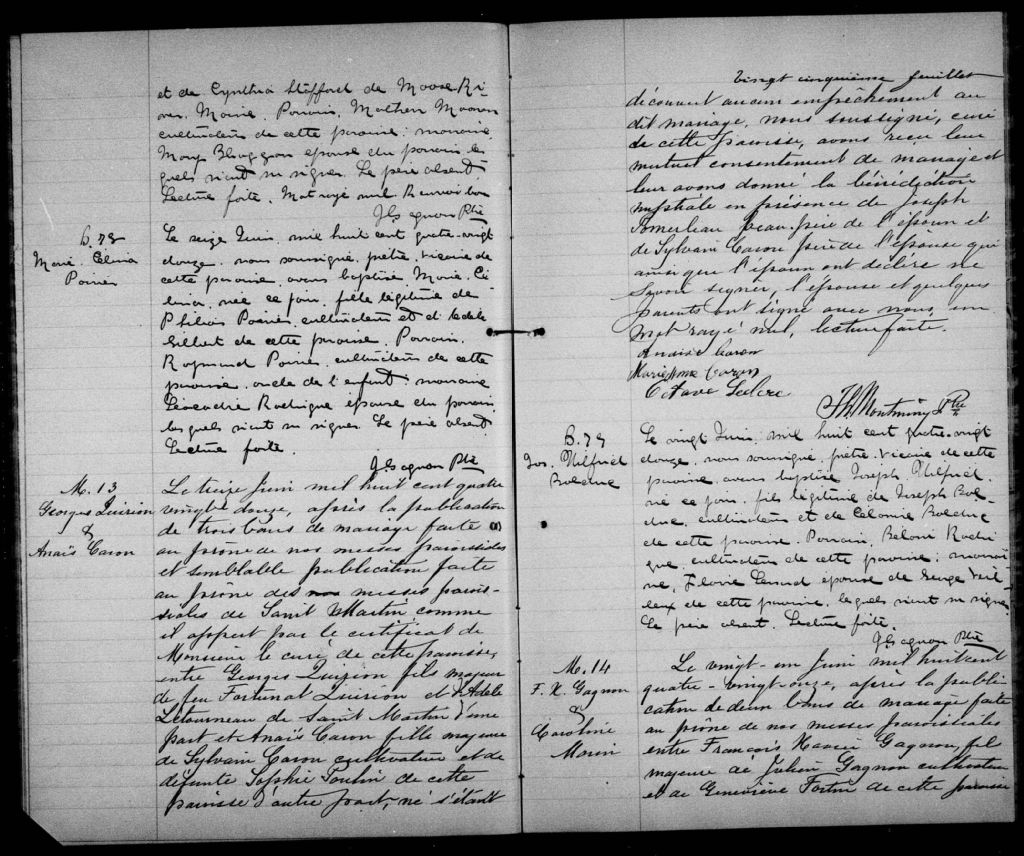 et de Cynthia Stafford de Moose Ri-
ver, Marie, Parrain, Mathew Mooney
cultivateur de cette paroisse; marraine
Mary épouse du parrain les
quels n'ont su signer. Le père absent
Lecture faite. Mot rayé nul
J G agnon Ptre
B. 78
Marie. Célina
Poirier
Le seize Juin, mil huit cent quatre-vingt
douze, nous soussigné, prêtre, vicaire de
cette paroisse, avons baptisé, Marie, Cé-
lina, née ce jour, fille légitime de
Philias Poirier, cultivateur et d'Adele
Gilbert de cette paroisse. Parrain,
Raymond Poirier, cultivateur de cette
paroisse, oncle de l'enfant; marraine
Léocadie Rodrigue épouse du parrain,
lesquels n'ont su signer. Le père absent
Lecture faite.
J G agnon Ptre
M. 13
Georges Quirion
&
Anaïs Caron
Le treize Juin mil huit cent quatre
vingt douze, après la publication
de trois bans de mariage faite
au prône de nos messes paroissiales
et semblable publication faite
au prône des nos messes parois-
siales de Saint Martin comme
il appert par le certificat de
Monsieur le curé de cette paroisse,
entre Georges Quirion fils majeur
de feu Fortunat Quirion et d'Adele
Letourneau de Saint Martin d'une
part et Anaïs Caron fille majeure
de Sylvain Caron cultivateur et de
défunte Sophie Poulin de cette
paroisse d'autre part, ne s'étant
Vingt cinquième feuillet
découvert aucun empêchement au
dit mariage, nous soussigné, curé
de cette paroisse, avons reçu leur
mutuel consentement de mariage et
leur avons donné la bénédiction
nuptiale en présence de Joseph
Pomerleau beau-père de l'époux et
de Sylvain Caron père de l'épouse qui
ainsi que l'époux ont déclaré ne
savoir signer, l'épouse et quelques
parents ont signé avec nous, un
mot rayé nul, lecture faite.
Anaise Caron
Marie Caron
Octave Leclerc
Th Montminy Ptre
B. 79
Jos. Wilfried
Bolduc
Le vingt Juin, mil huit cent quatre-vingt
douze, nous soussigné, prêtre, vicaire de cette
paroisse, avons baptisé Joseph Wilfried,
né ce jour, fils légitime de Joseph Bol-
duc, cultivateur et de Célanie Bolduc
de cette paroisse. Parrain, Béloni Rodri
gue, cultivateur de cette paroisse; marrai-
ne, épouse de Serge Veil
leux de cette paroisse, lesquels n'ont su signer
Le père absent. Lecture faite.
J G agnon Ptre
M. 14
F. X. Gagnon
&
Caroline
Morin
Le vingt-un Juin mil huit cent
quatre-vingt-onze, après la publi-
cation de deux bans de mariage faite
au prône de nos messes paroissiales
entre François Xavier Gagnon, fils
majeur de Julien Gagnon cultivateur
et de Geneviève Fortin de cette paroisse